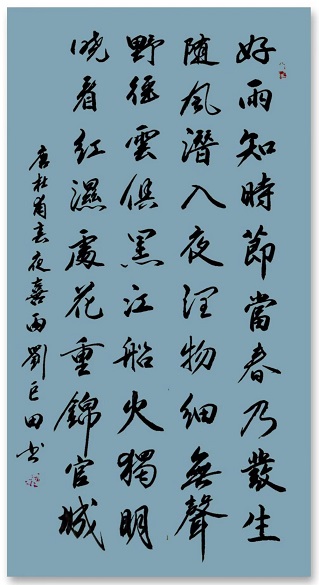 好雨知時節當春乃發生
随風潛入夜润物細無聲
野徑雲俱黑江船火獨明
曉看紅濕處花重錦官城
唐杜甫春夜喜雨劉巨田书